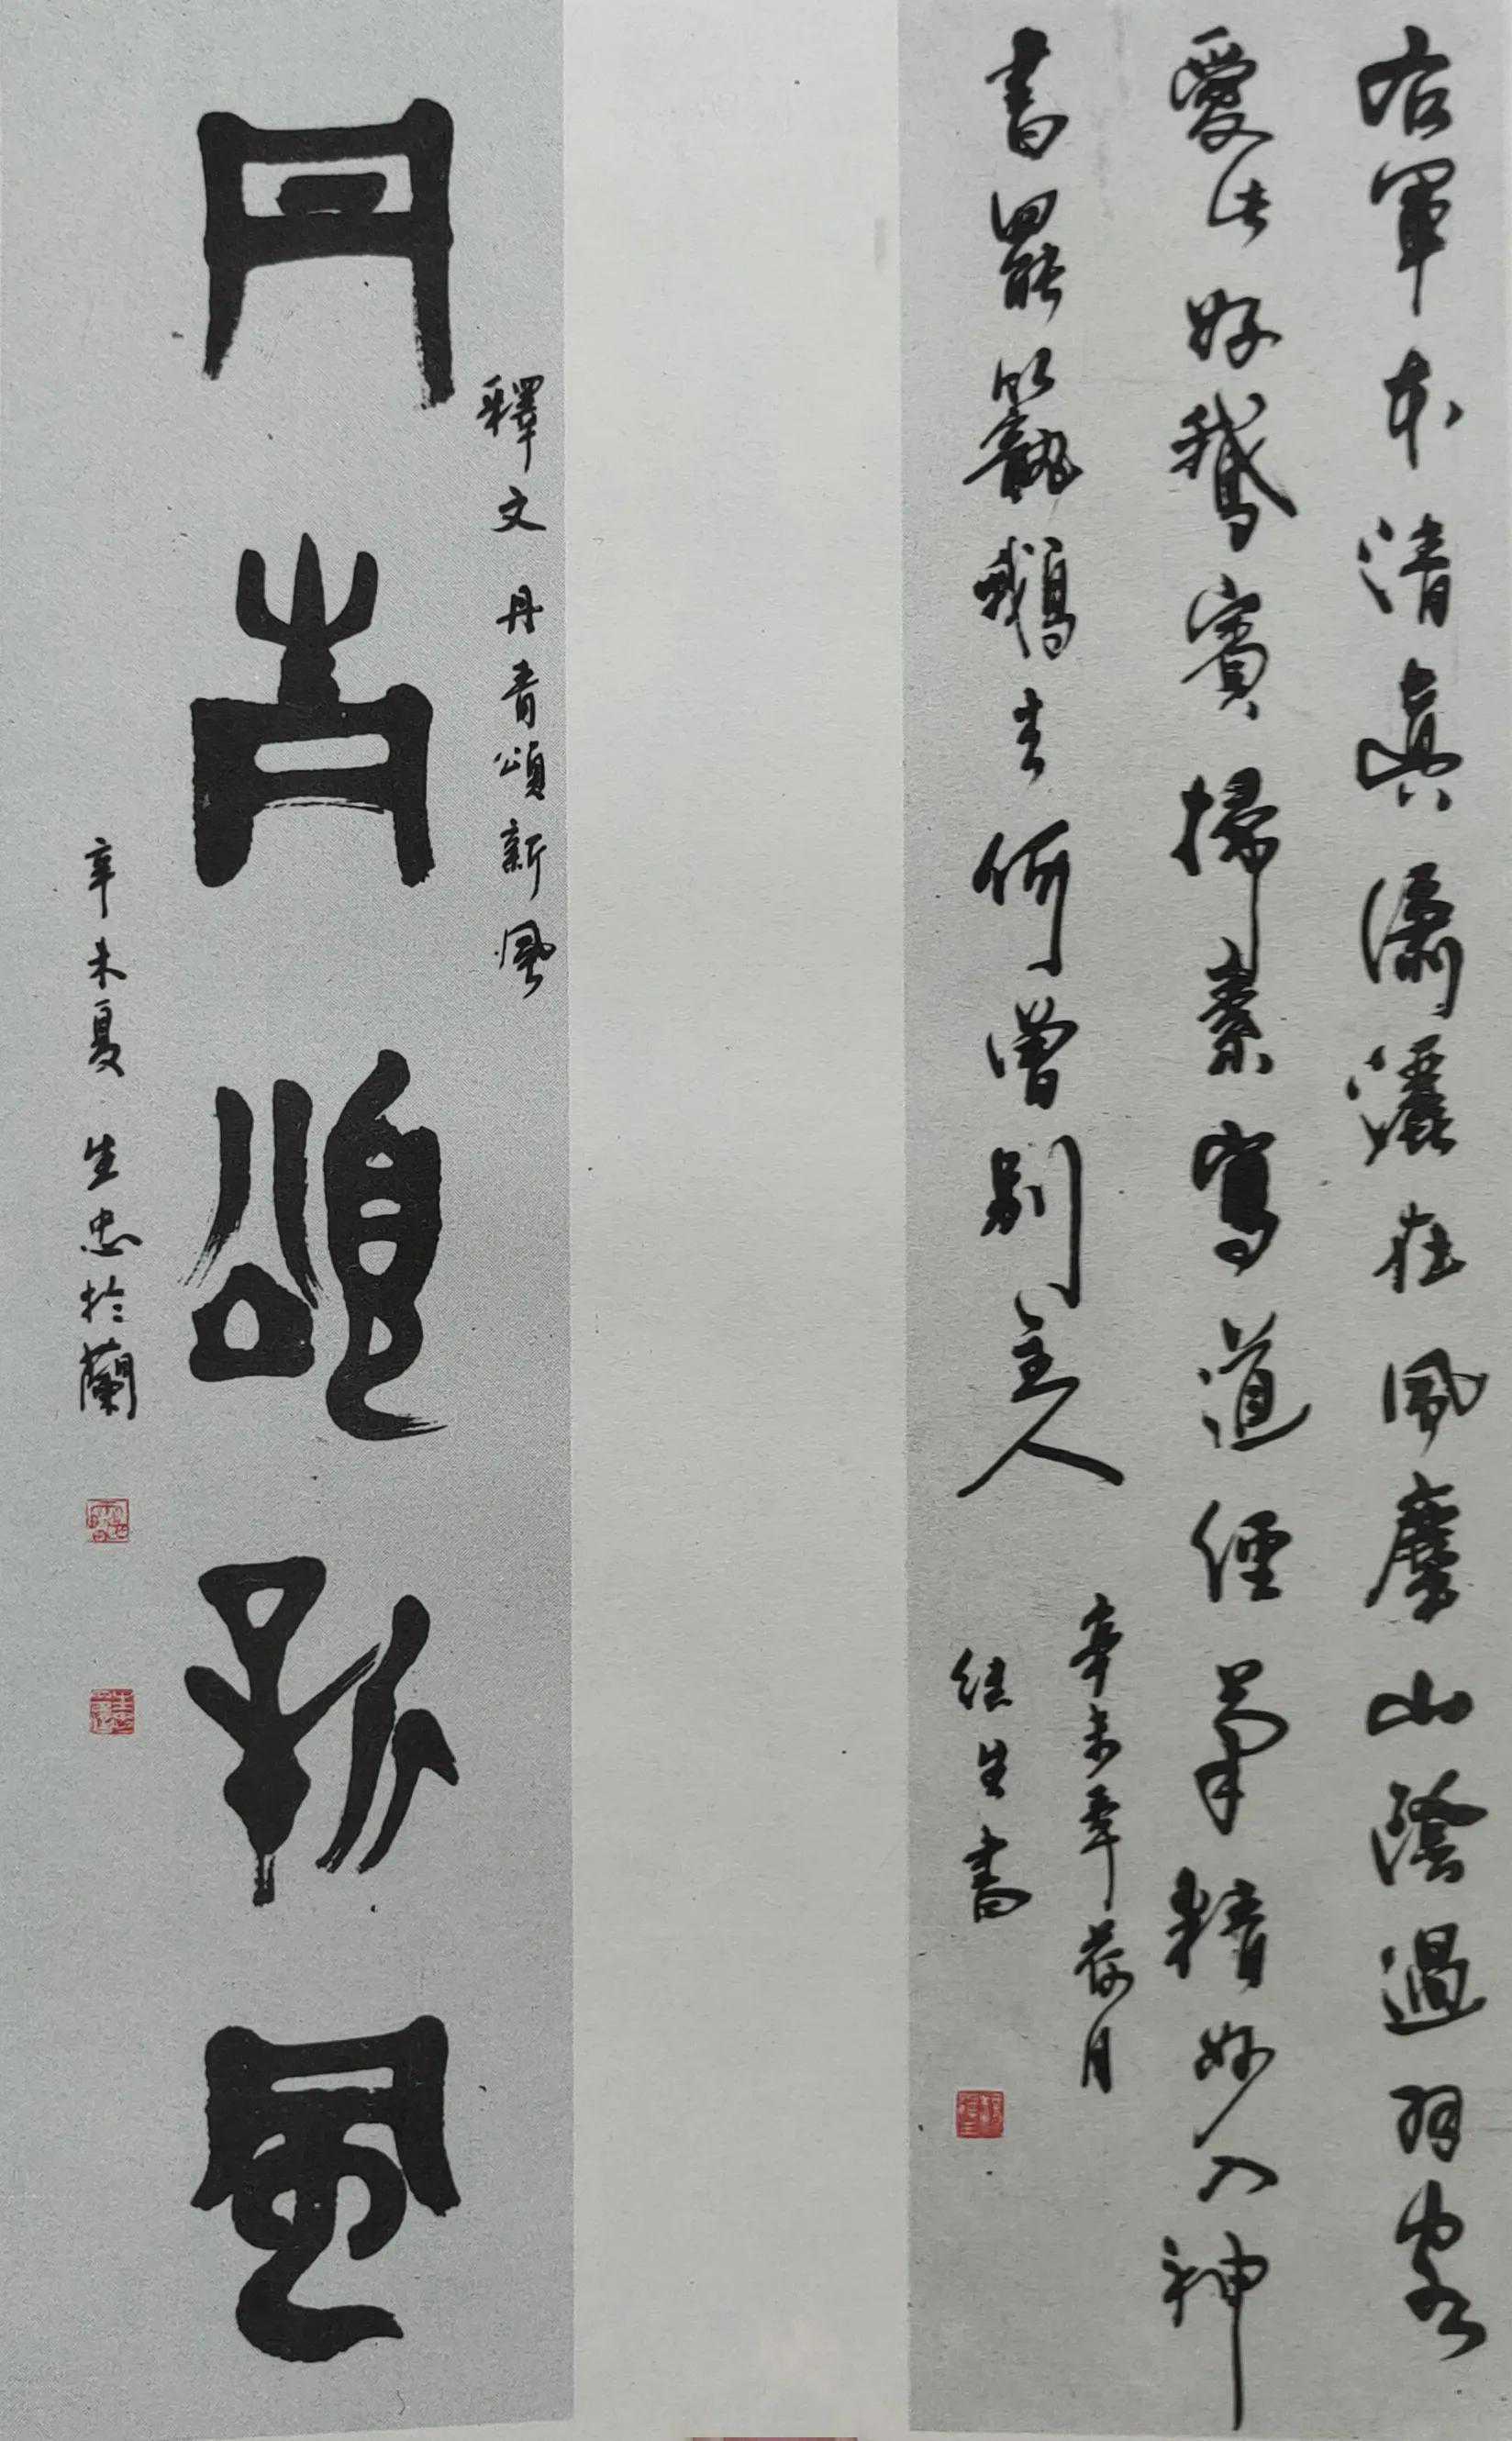 右軍本清真瀟灑在風塵山陰過羽客
愛此好鵝賓掃素寫道經筆精妙入神
書罷籠鵝去何曾別主人
辛未年荷月
生書
釋文 丹青頌新風
丹青頌新風
辛未夏 生忠於蘭